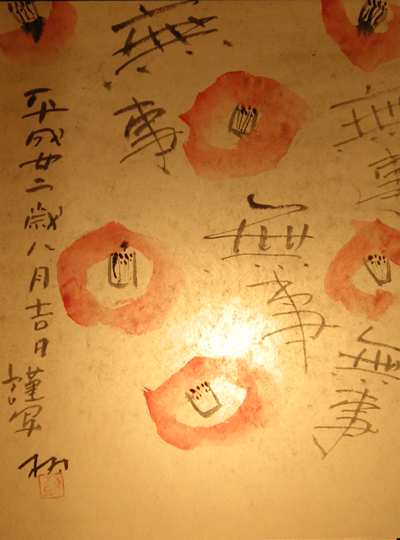 無事
無事
無事
無事
平成廿二歳八月吉日 謹写